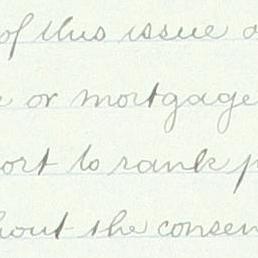 of this issue
or mortgage
ort to rank
hout the consen